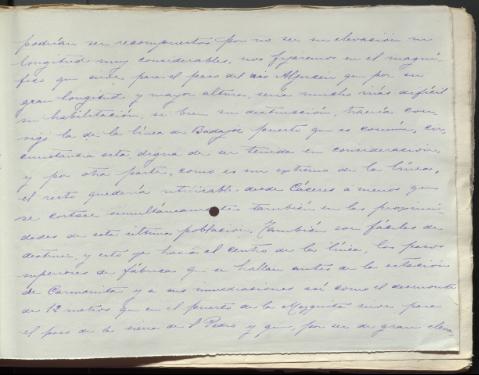 podrían ser recompuestos por no ser su elevación ni
longitud muy considerables, nos fijaremos en el magní-
fico que sirve para el paso del río Aljucén que por su
gran longitud y mayor altura, sería mucho más difícil
su habilitación, si bien su destrucción, traería con-
sigo la de la línea de Badajoz puesto que es común, cir-
cunstancia esta digna de ser tenida en consideración,
y por otra parte, como es un extremo de la línea,
el resto quedaría utilizable desde Cáceres a menos que
se cortase simultáneamente también en las proximi-
dades de esta última población. También son fáciles de
destruir, y esto ya hacia el centro de la línea, los pasos
superiores de fábrica que se hallan antes de la estación
de Carmonita y a sus inmediaciones así como el desmonte
de 12 metros que en el puerto de la Mezquita sirve para
el paso de la sierra de S. Pedro y que, por ser de gran eleva